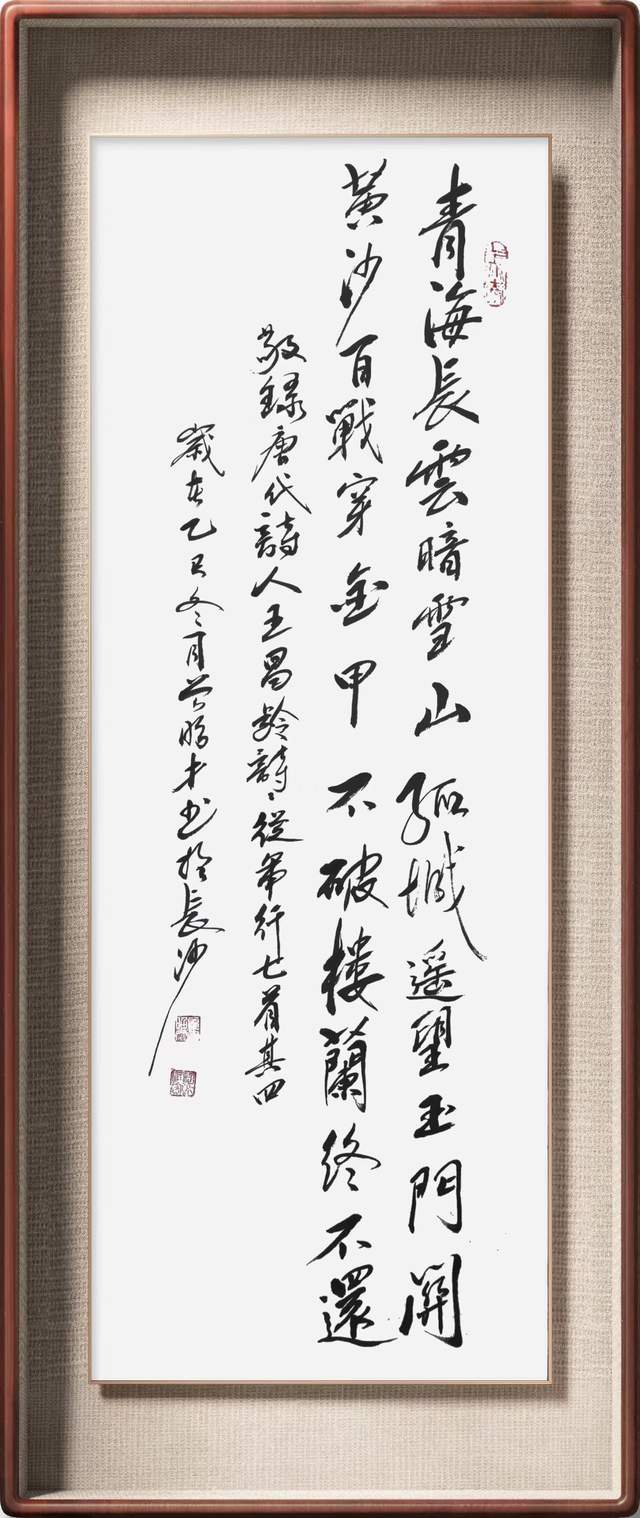 青海長雲暗雪山孤城遥望玉門関
黄沙百戰穿金甲不破楼蘭终不還
敬録唐代詩人王昌龄詩、從军行七首其四
歲在乙巳冬月才书於長沙